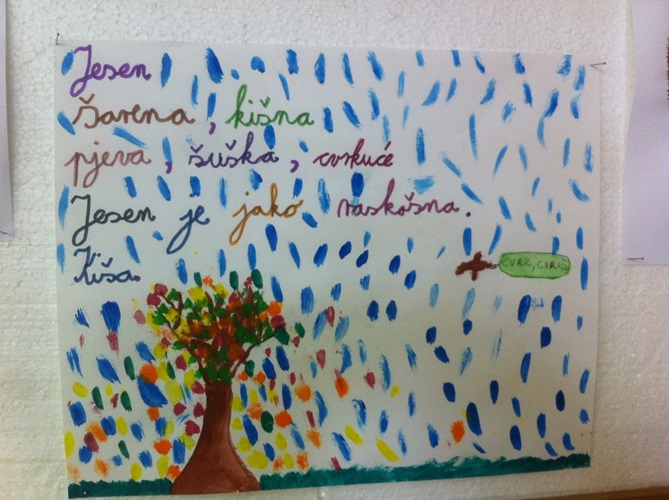 Jesen
Šarena, kišna
pjeva, šuška, cvrkuće
Jesen je jako raskošna.
Kiša.
CVRK, CVRK